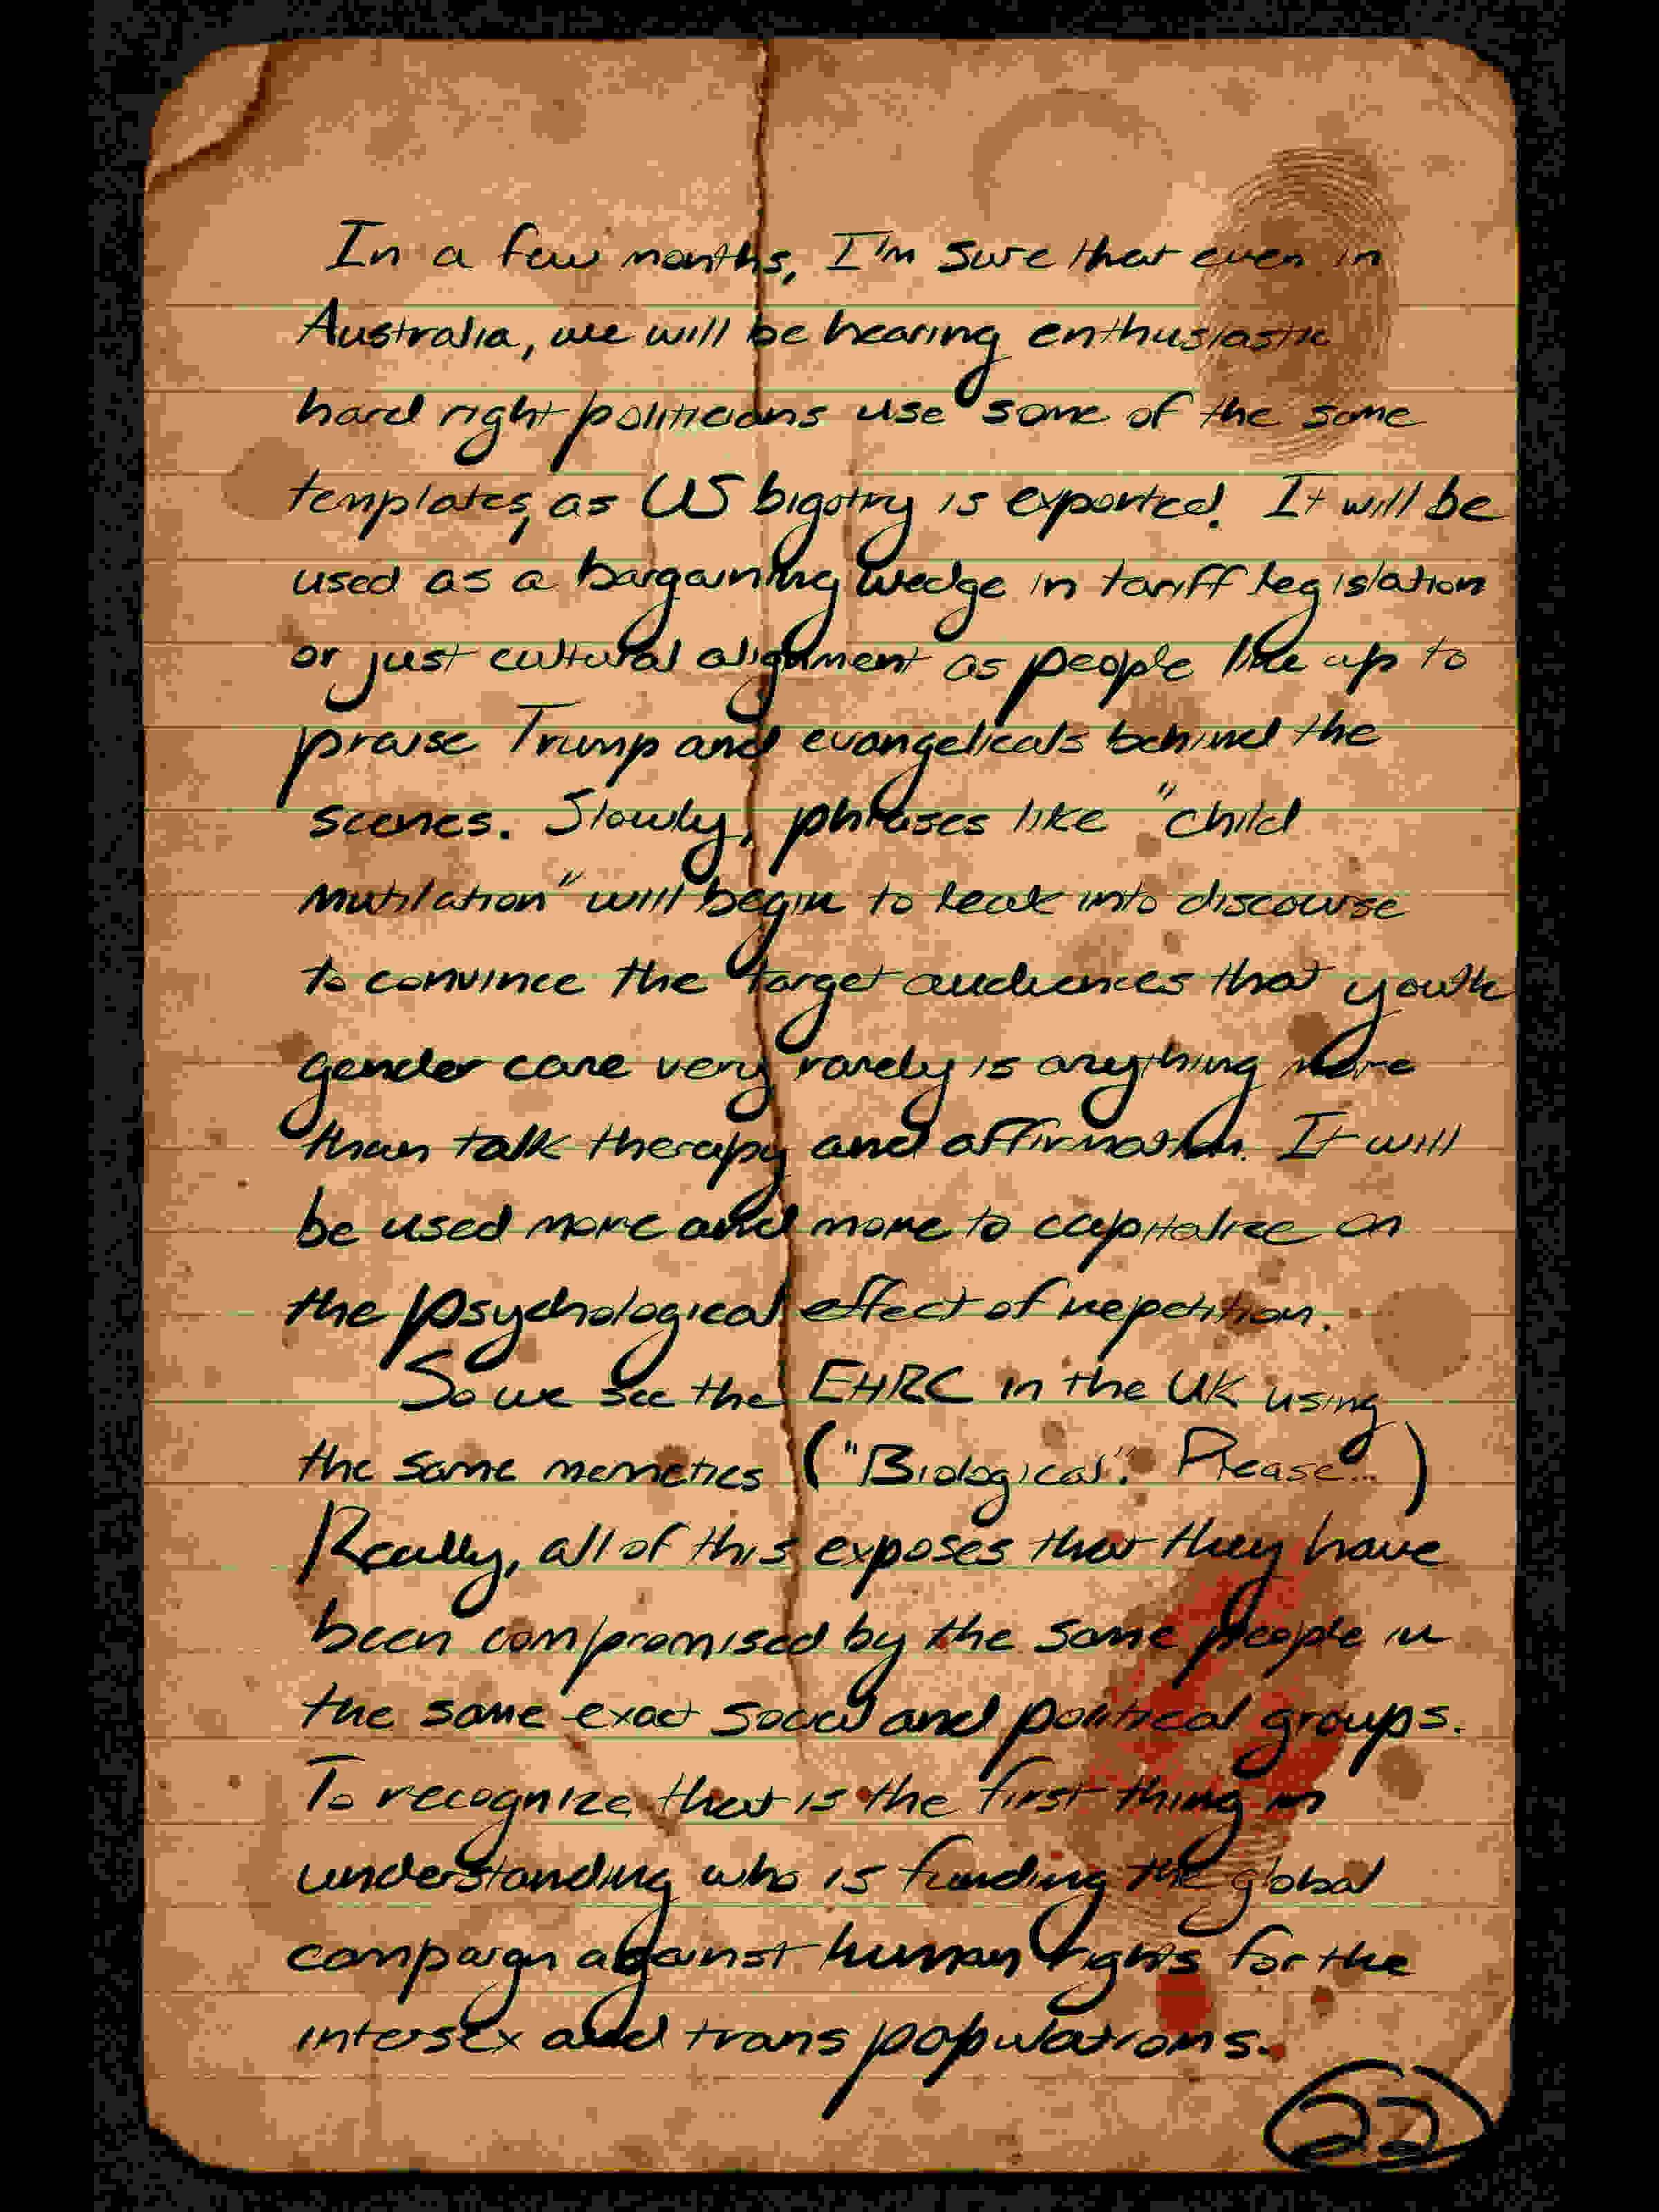 In a few months, I'm sure that even in
Australia, we will be hearing enthusiastic
hard right politicians use some of the same
templates, as US bigotry is exported. It will be
used as a bargaining wedge in tariff legislation
or just cultural alignment as people line up to
praise Trump and evangelicals behind the
scenes. Slowly, phrases like "child
mutilation" will begin to leak into discourse
to convince the target audiences that youth
gender care very rarely is anything more
than talk therapy and affirmation. It will
be used more and more to capitalize on
the psychological effect of repetition.
So we see the EHRC in the UK using
the same memetics ("Biological". Please...)
Really, all of this exposes that they have
been compromised by the same people in
the same exact social and political groups.
To recognize that is the first thing in
understanding who is funding the global
campaign against human rights for the
intersex and trans populations.
22